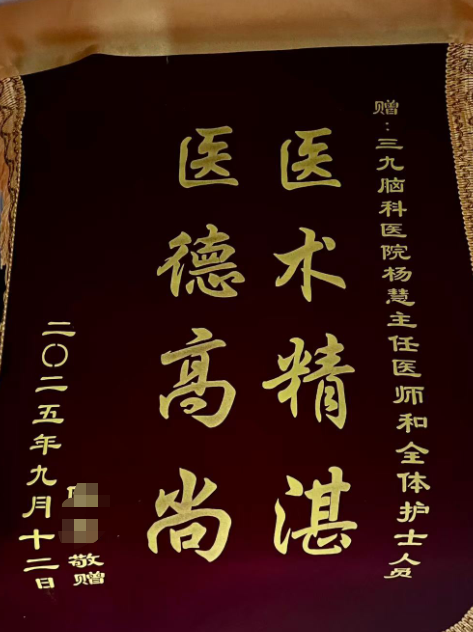 赠:三九脑科医院杨慧主任医师和全体护士人员
医术精湛
医德高尚
敬赠
二〇二五年九月十二日